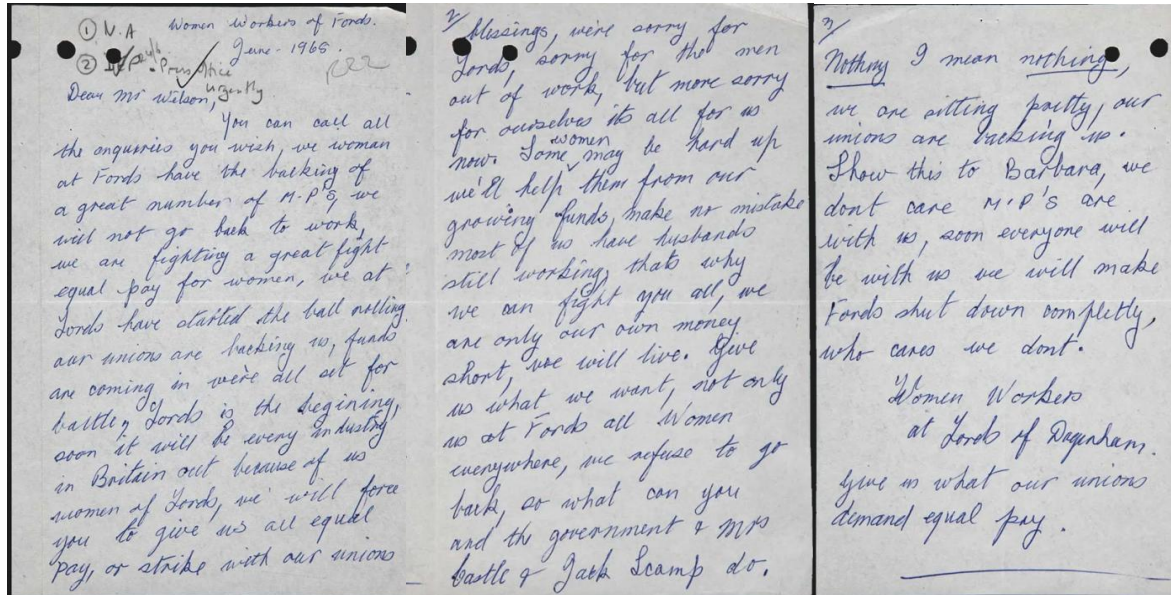 ① N.A
Women Workers of Fords.
June - 1968.
②
Press Office
urgently
Dear Mr Wilson,
You can call all
the enquiries you wish, we woman
at Fords have the backing of
a great number of M.P'S, we
will not go back to work,
we are fighting a great fight
equal pay for women, we at
Fords have started the ball rolling
our unions are backing us, funds
are coming in we're all set for
battle, Fords is the begining,
soon it will be every industry
in Britain out because of us
women of Fords, we will force
you to give us all equal
pay, or strike with our unions
2/
blessings, we're sorry for
Fords, sorry for the men
out of work, but more sorry
for ourselves its all for us
now. Some women may be hard up
we'll help them from our
growing funds, make no mistake
most of us have husbands
still working, thats why
we can fight you all, we
are only our own money
short, we will live. Give
us what we want, not only
us at Fords all Women
everywhere, we refuse to go
back, so what can you
and the government & Mrs
Castle & Jack Scamp do.
3/
Nothing I mean nothing,
we are sitting pretty, our
unions are backing us.
Show this to Barbara, we
dont care M.P'S are
with us, soon everyone will
be with us we will make
Fords shut down completly,
who cares we dont.
Women Workers
at Fords of Dagenham.
Give us what our unions
demand equal pay.